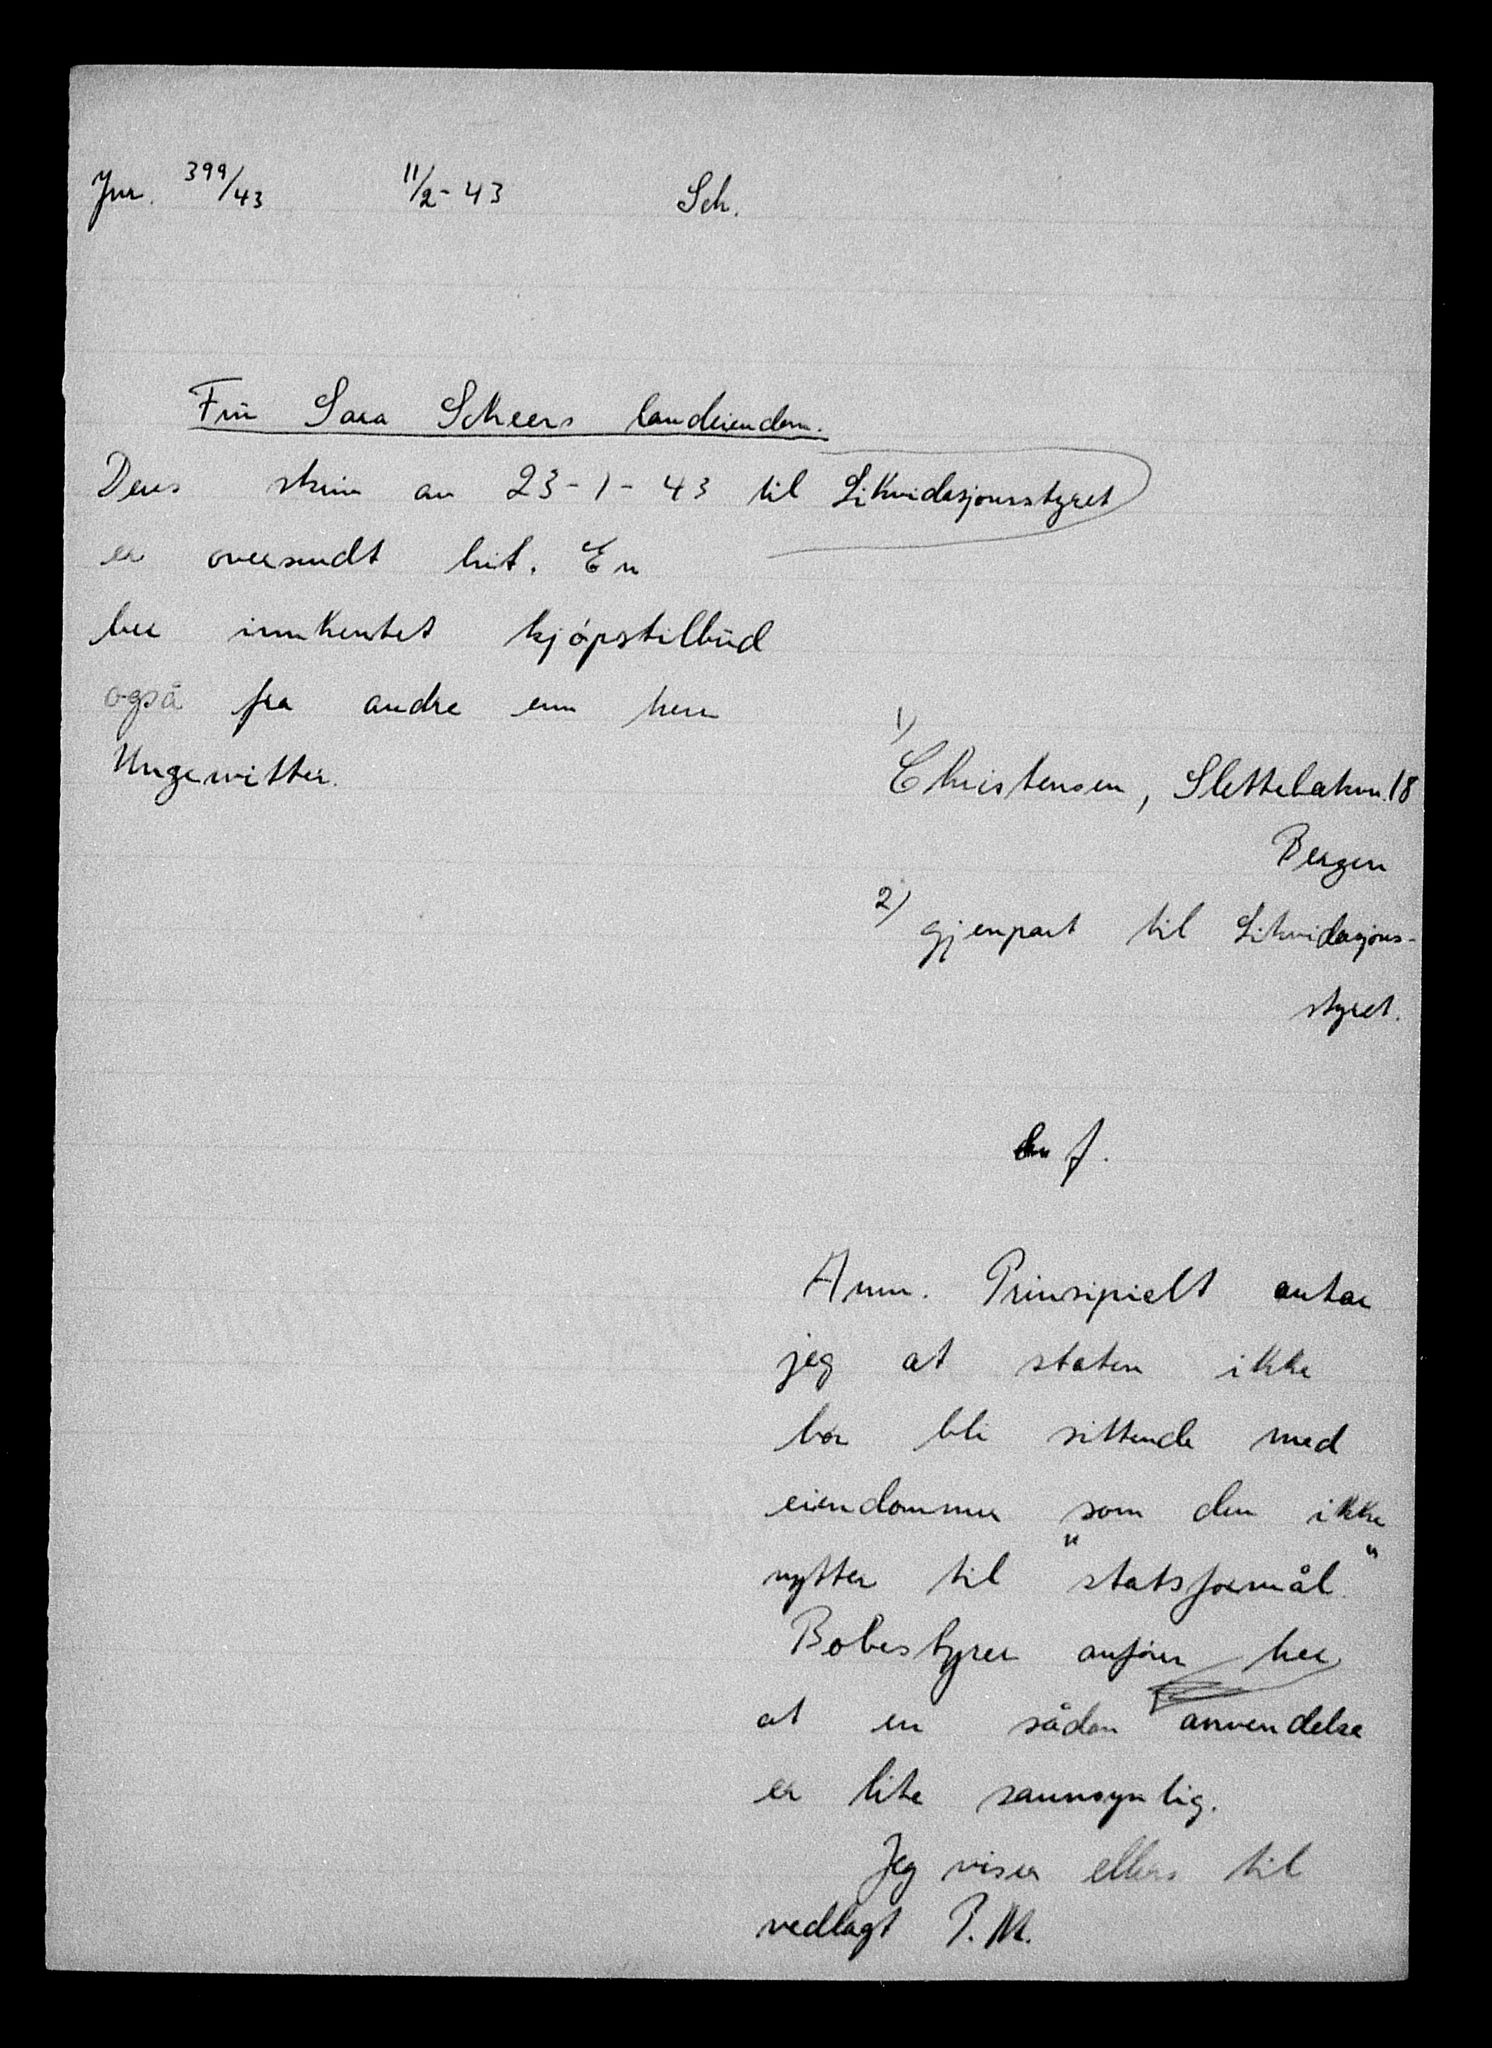 Jnr. 399/43 11/2-43 Sch.
Frü Sara Scheers landeiendom.
Deres skriv av 23-1-43 til Likvidasjonsstyret
er oversendt hit. En
ber innhentet kjøpstilbüd
også fra andre enn herr
Ungewitter.
1)
Christensen, Slettebakvn. 18
Bergen
2) gjenpart til Likvidasjons-
styret.
f.
Anm. Prinsipielt antar
jeg at staten ikke
bør bli sittende med
eiendommer som den ikke
nytter til "statsformål."
Bobestyrer anfører her
at en sådan anvendelse
er lite sannsynlig.
Jeg viser ellers til
vedlagt P.M.